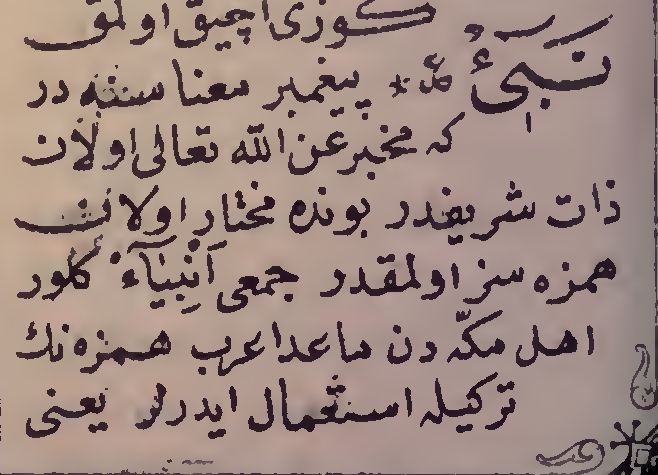 كوزى اچيق اولمق
نَبِيءُ پيغمبر معناسنه در
كه مخبر عن الله تعالى اولان
ذات شريفدر بونده مختار اولان
همزه سز اولمقدر جمعى اَنْبِيَآءُ كلور
اهل مكّه دن ماعدا عرب همزه نك
تركيله استعمال ايدرلر يعنى